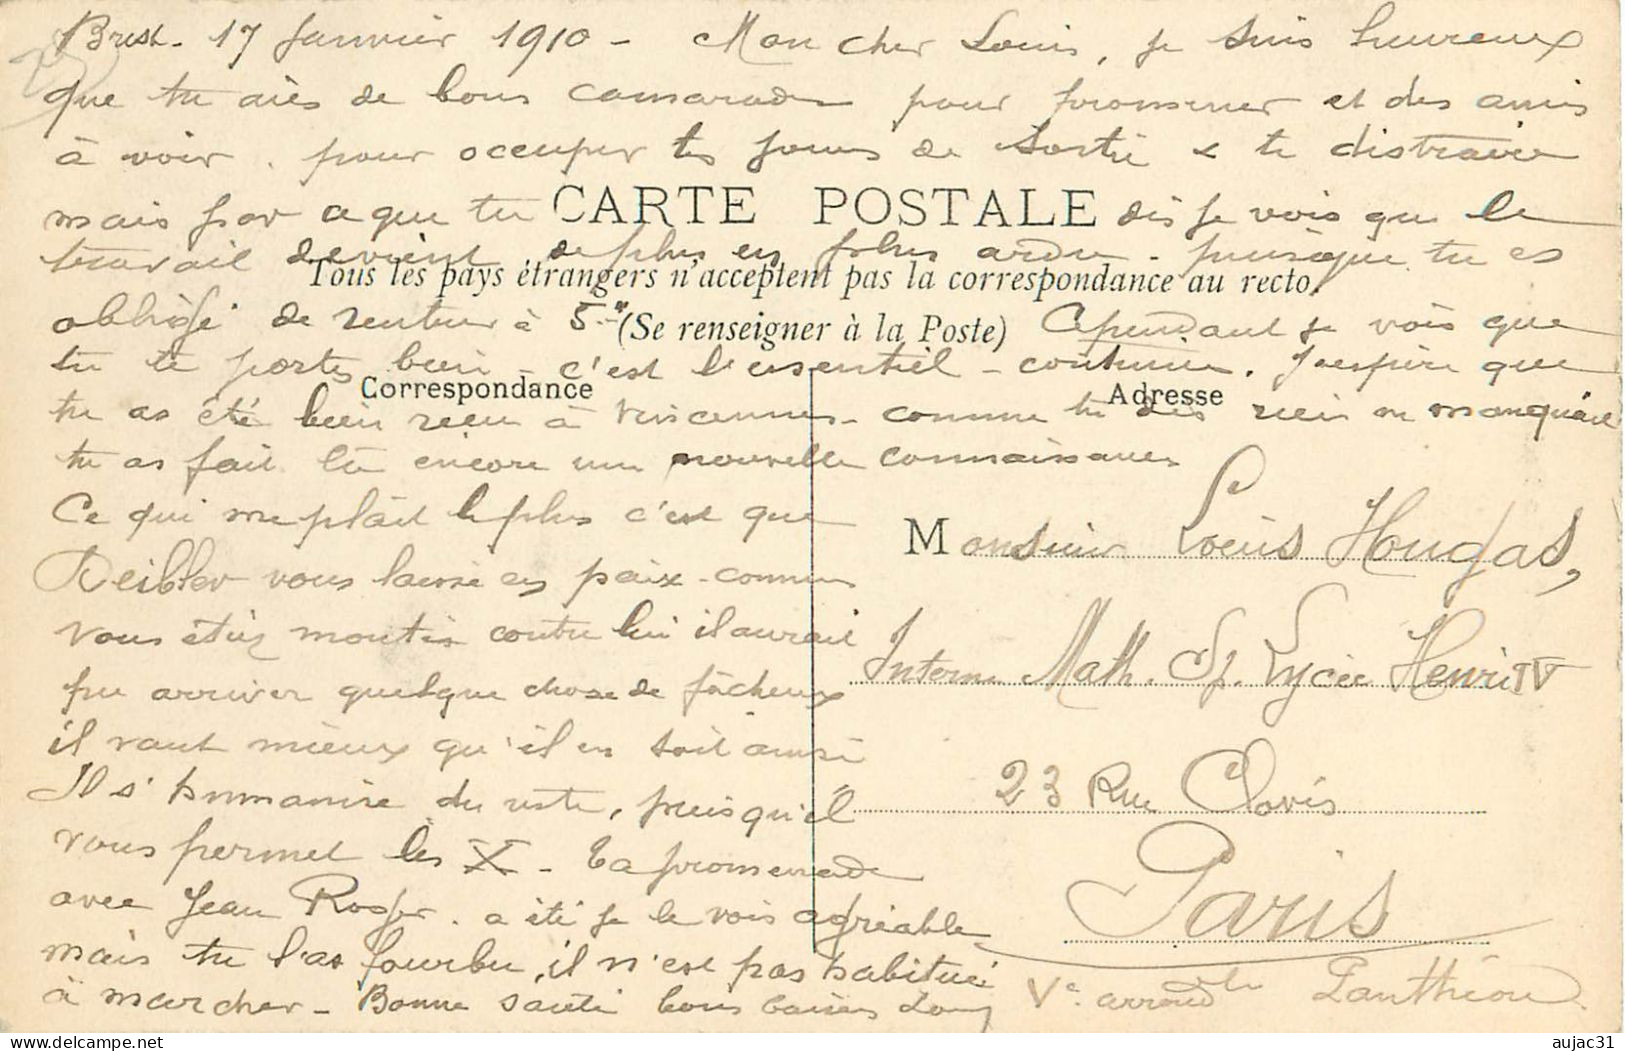 Brest - 17 Janvier 1910 - Mon cher Louis, je suis heureux
que tu aies de bons camarades pour promener et des amis
à voir. pour occuper tes jours de sortie & te distraire
mais par ce que tu dis je vois que le
CARTE POSTALE
travail devient de plus en plus ardu - puisque tu es
Tous les pays étrangers n'acceptent pas la correspondance au recto.
obligé de rentrer à 5h - Cependant je vois que
(Se renseigner à la Poste)
tu te portes bien - c'est l'essentiel - continue. J'espère que
Correspondance
Adresse
tu as été bien reçu à Vincennes - comme tu dis rien ne manquait
tu as fait là encore une nouvelle connaissance
Ce qui me plait le plus c'est que
Deibler vous laisse en paix - comme
vous étiez montés contre lui il aurait
pu arriver quelque chose de fâcheux
il vaut mieux qu'il en soit ainsi
Il s'humanise du reste, puisqu'il
vous permet les X - Ta promenade
avec Jean Roger. a été je le vois agréable
mais tu l'as fourbu, il n'est pas habitué
à marcher - Bonne santé bons baisers
Monsieur Louis Hougas,
Interne Math. Sp. Lycée Henri IV
23 Rue Clovis
Paris
Ve arrond Panthéon
aujac31